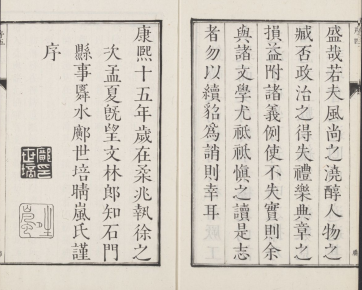 盛哉若夫風尚之澆醇人物之
臧否政治之得失禮樂典章之
損益附諸義例使不失實則余
與諸文學尤祗祗愼之讀是志
者勿以續貂為誚則幸耳
康熙十五年歲在柔兆執徐之
次孟夏旣望文林郎知石門
縣事舞水鄺世培晴嵐氏謹
序